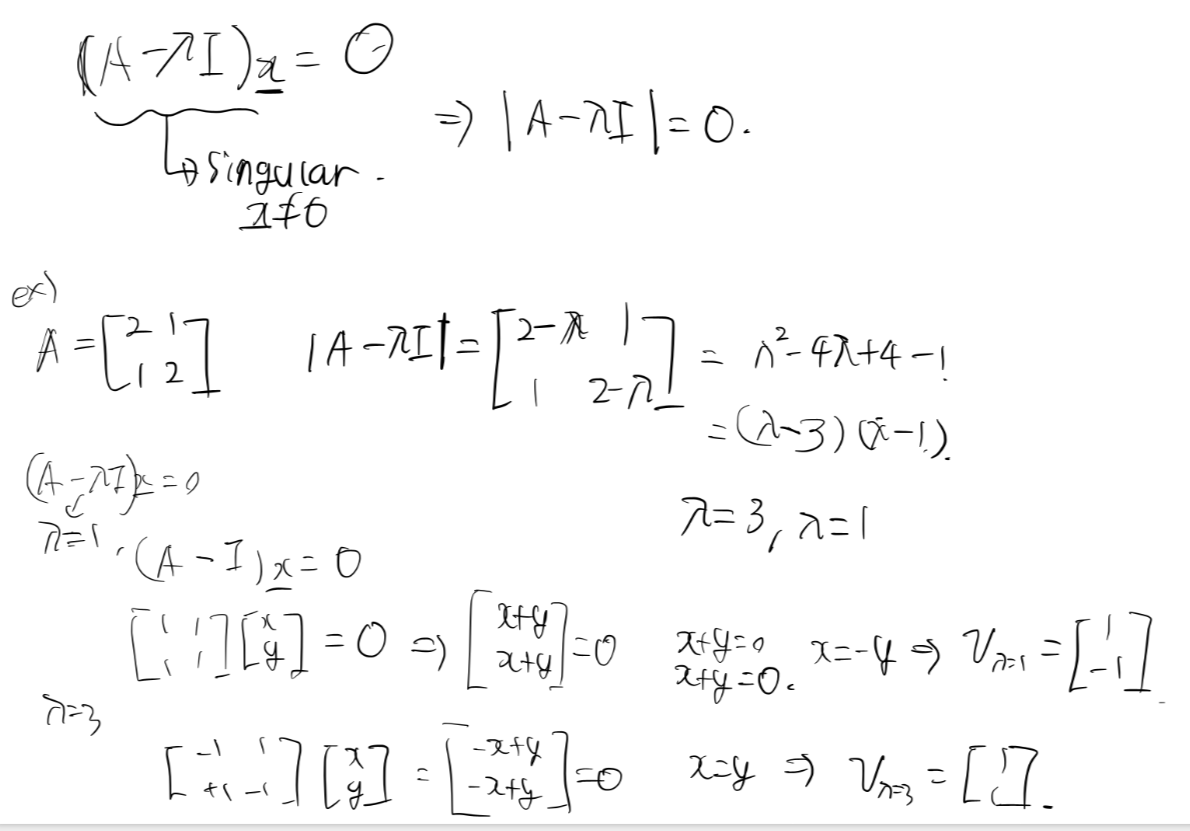 (A-λI)x = 0
⇒ |A-λI| = 0.
↳ singular.
x≠0
ex)
A = [2 1; 1 2] |A-λI| = [2-λ 1; 1 2-λ] = λ²-4λ+4-1
= (λ-3)(λ-1).
λ=3, λ=1
(A-λI)x=0
λ=1, (A-I)x=0
[1 1; 1 1][x; y] = 0 ⇒ [x+y; x+y]=0 x+y=0 x+y=0. x=-y ⇒ V_{λ=1} = [1; -1].
λ=3
[-1 1; +1 -1][x; y] = [-x+y; -x+y]=0 x=y ⇒ V_{λ=3} = [1; 1].